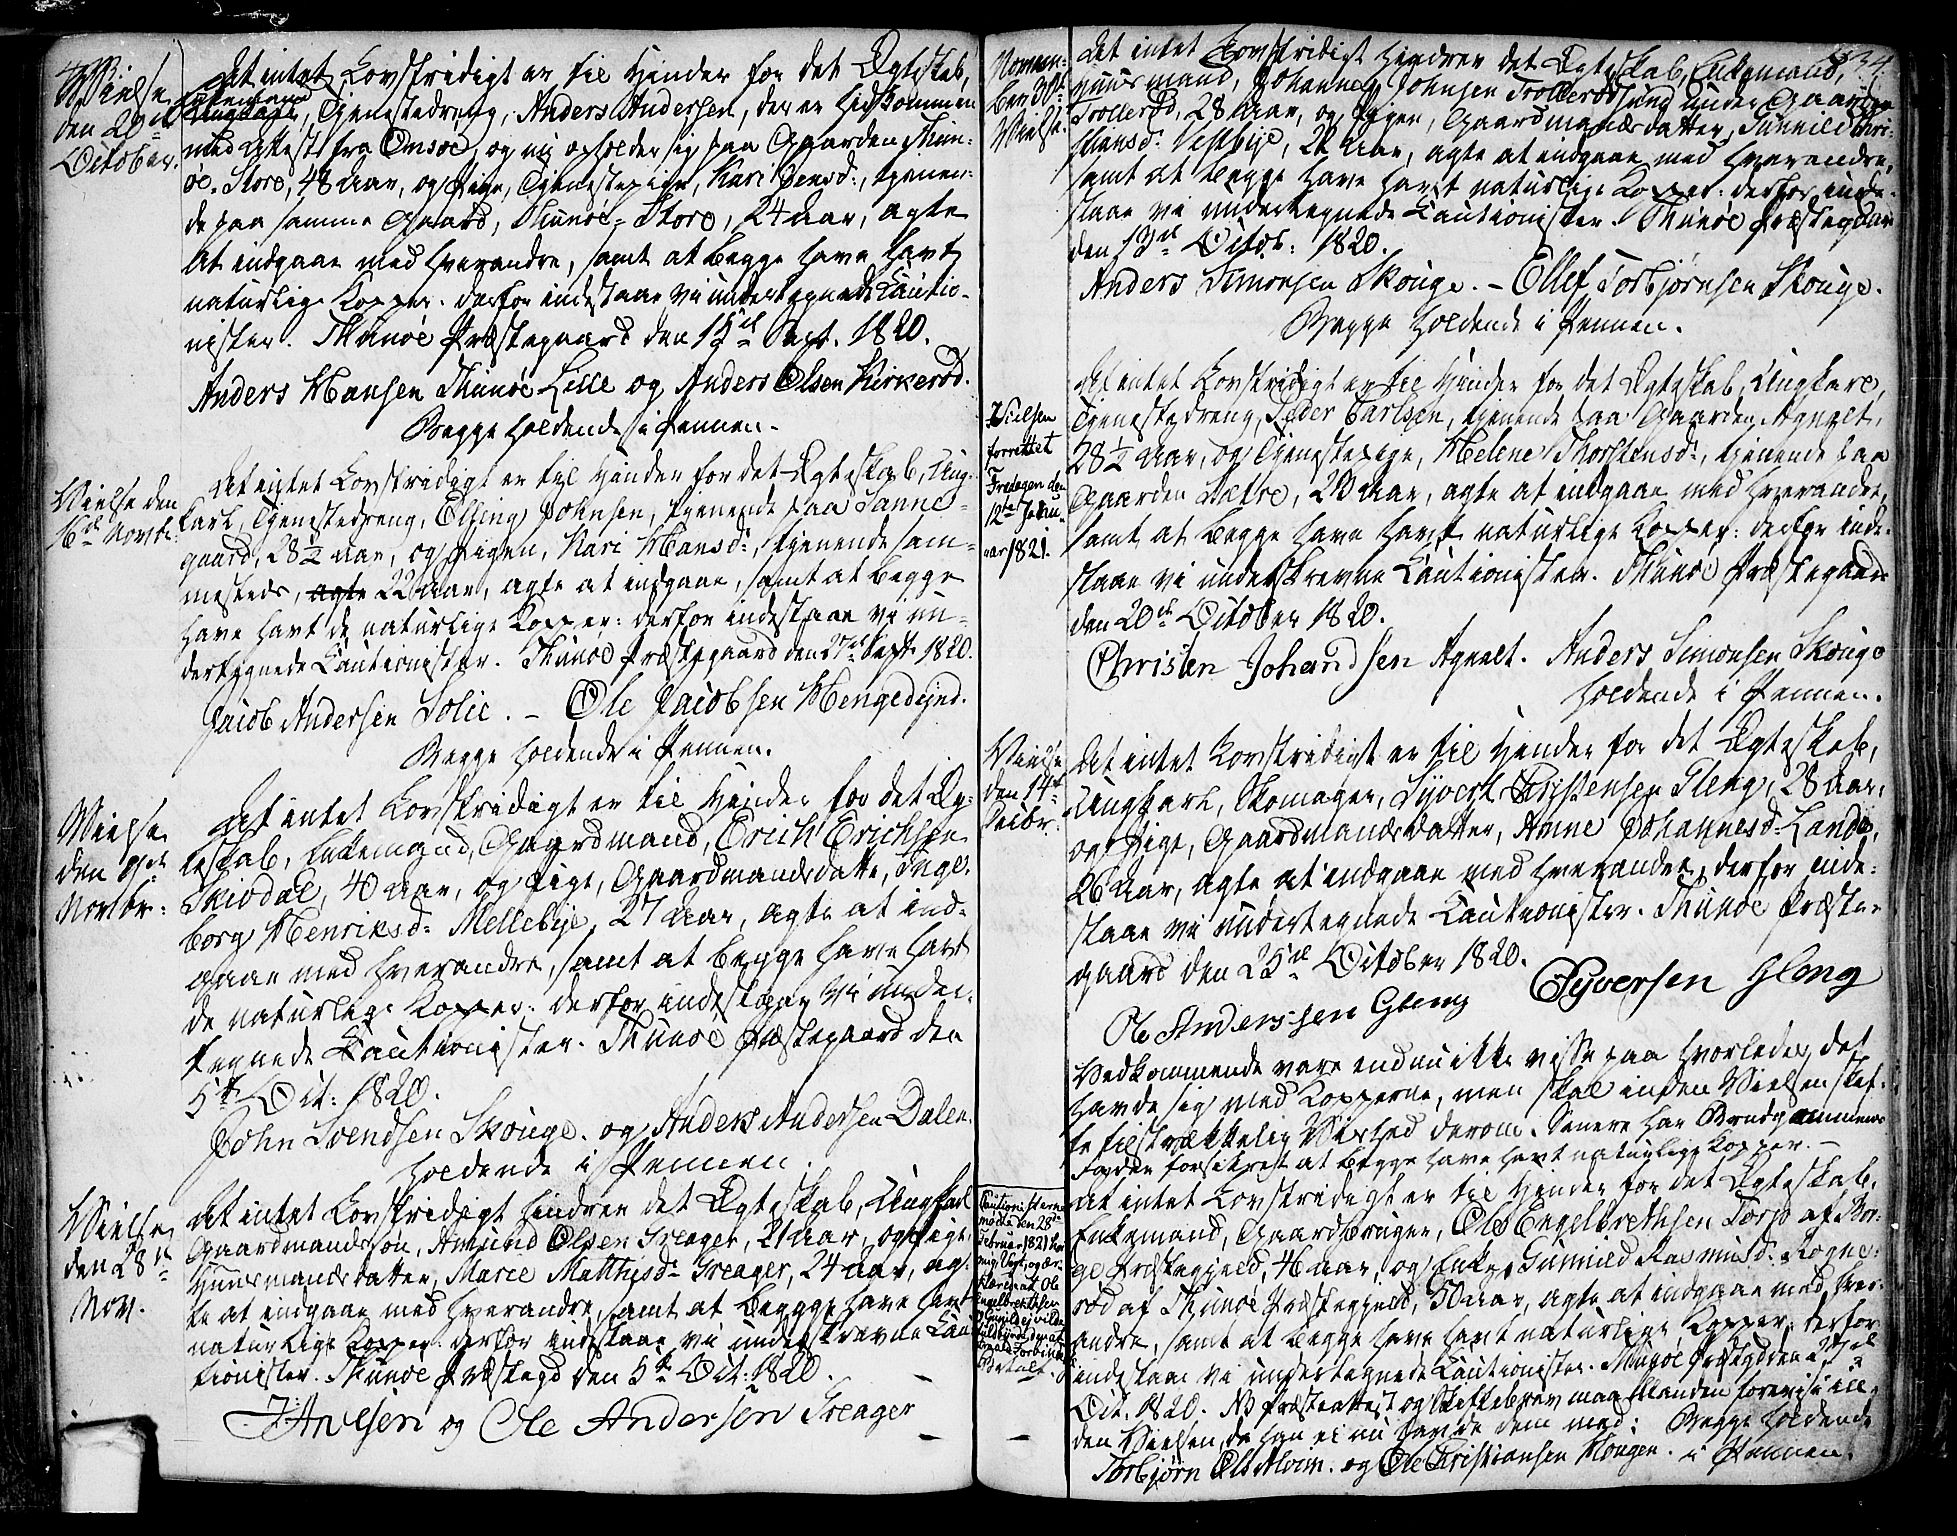 Vielse
den 20de
Octobr.
At intet Lovstridigt er til Hinder for det Ægteskab,
Enkemand
Ungkarl, Tjenestedreng, Anders Andersen, der er hidkommen
med Attest fra Omsøe, og nu opholder sig paa Gaarden Thun-
øe-Store, 48 Aar, og Pige, Tjenestepige, Kari Jensd:, tjenen-
de paa samme Gaard, Thunøe-Store, 24 Aar, agte
at indgaae med hverandre, samt at begge have havt
naturlige Kopper: derfor indestaae vi undertegnede Cautio-
nister. Thunøe Præstegaard den 15de Sept. 1820.
Anders Hansen Thunøe Lille og Anders Olsen Kirkerød.
Begge holdende i Pennen.
Vielse den
16de Novbr.
At intet Lovstridigt er til Hinder for det Ægteskab, Ung-
karl, Tjenestedreng, Elling Johnsen, tjenende paa Sanne-
gaard, 28 1/2 Aar, og Pigen, Kari Hansd:, tjenende sam-
mesteds, agte 22 Aar, agte at indgaae, samt at begge
have havt de naturlige Kopper: derfor indestaae vi un-
dertegnede Cautionister. Thunøe Præstegaard den 27de Sept. 1820.
Jacob Andersen Solie. - Ole Jacobsen Hengedejnd.
Begge holdende i Pennen.
Vielse
den 9de
Novbr:
At intet Lovstridigt er til Hinder for det Æg-
teskab, Enkemand, Gaardmand, Erich Erichsen
Skiodal, 40 Aar, og Pige, Gaardmandsdatter, Inge-
borg Henriksd: Mellebye, 27 Aar, agte at ind-
gaae med hverandre, samt at begge have havt
de naturlige Kopper: derfor indestaae vi under-
tegnede Cautionister. Thunøe Præstegaard den
5te Oct: 1820.
John Svendsen Skouge. og Anders Andersen Dalen.
holdende i Pennen.
Vielse
den 28de
Nov.
At intet Lovstridigt hindrer det Ægteskab, Ungkarl
Gaardmandssøn, Amund Olsen Greager, 21 Aar, og Pige,
Huusmandsdatter, Maree Mathisd: Greager, 24 Aar, ag-
te at indgaae med hverandre, samt at begge have havt
naturlige Kopper: derfor indestaae vi underskrevne Cau-
tionister. Thunøe Præstegd den 5te Oct: 1820.
og Ole Andersen Greager
Novem-
ber 30te
Vielse.
At intet Lovstridigt hindrer det Ægteskab, Enkemand,
Huusmand, Johannes Johnsen Trollerødsund under Gaarden
Trollerød, 28 Aar, og Pigen, Gaardmandsdatter, Gunnild Chri-
stiansd: Vestbye, 22 Aar, agte at indgaae med hverandre,
samt at begge have havt naturlige Kopper: derfor inde-
staae vi undertegnede Cautionister. Thunøe Præstegaard
den 13de Octob: 1820.
Anders Simonsen Skouge. - Ellef Torbjørnsen Skouge.
Begge holdende i Pennen.
Vielsen
forrettet
Fredagen den
12te Janu-
ar 1821.
At intet Lovstridigt er til Hinder for det Ægteskab, Ungkarl,
Tjenestedreng, Peder Carlsen, tjenende paa Gaarden Agnalt,
28 1/2 Aar, og Tjenestepige, Helene Thorstensd:, tjenende paa
Gaarden Sætre, 20 Aar, agte at indgaae med hverandre,
samt at begge have havt naturlige Kopper: derfor inde-
staae vi underskrevne Cautionister. Thunøe Præstegaard
den 20de October 1820.
Christen Johandsen Agnalt. Anders Simonsen Skouge
holdende i Pennen.
Vielse
den 14de
Decbr:
At intet Lovstridigt er til Hinder for det Ægteskab,
Ungkarl, Skomager, Syvert Christensen Gleng, 28 Aar,
og Pige, Gaardmandsdatter, Anne Johannesd: Lande,
26 Aar, agte at indgaae med hverandre, derfor inde-
staae vi undertegnede Cautionister. Thunøe Præste-
gaard den 25de October 1820.
Syversen Gleng
Ole Anderssen Gleng
Vedkommende vare endnu ikke visse paa hvorledes det
havde sig med Kopperne, men skal inden Vielsen skaf-
fe tilstrækkelig Vished derom. Senere har Brudgommens
Fader forsikret at begge have havt naturlige Kopper. -
Cautionisterne
mødte den 28de
Februar 1821 hos
mig Vogt, og er-
klærede at Ole
Engelbrethsen
og Gunild ej vilde
fuldbyrde det af-
talte Forbund.
At intet Lovstridigt er til Hinder for det Ægteskab,
Enkemand, Gaardbruger, Ole Engelbrethsen Torp af Bor-
ge Præstegjeld, 46 Aar, og Enke, Gunnild Rasmusd: Rogne-
rød af Thunøe Præstegjeld, 50 Aar, agte at indgaae med hver-
andre, samt at begge have havt naturlige Kopper: derfor
indestaae vi undertegnede Cautionister. Thunøe Præstegd den 27de
Oct. 1820. NB Præsteattest og Skiftebrev maa Manden forevise in-
den Vielsen, da han ei nu havde dem med: Begge holdende
Torbjørn Ols Alvim. og Ole Christiansen Hougen. i Pennen.